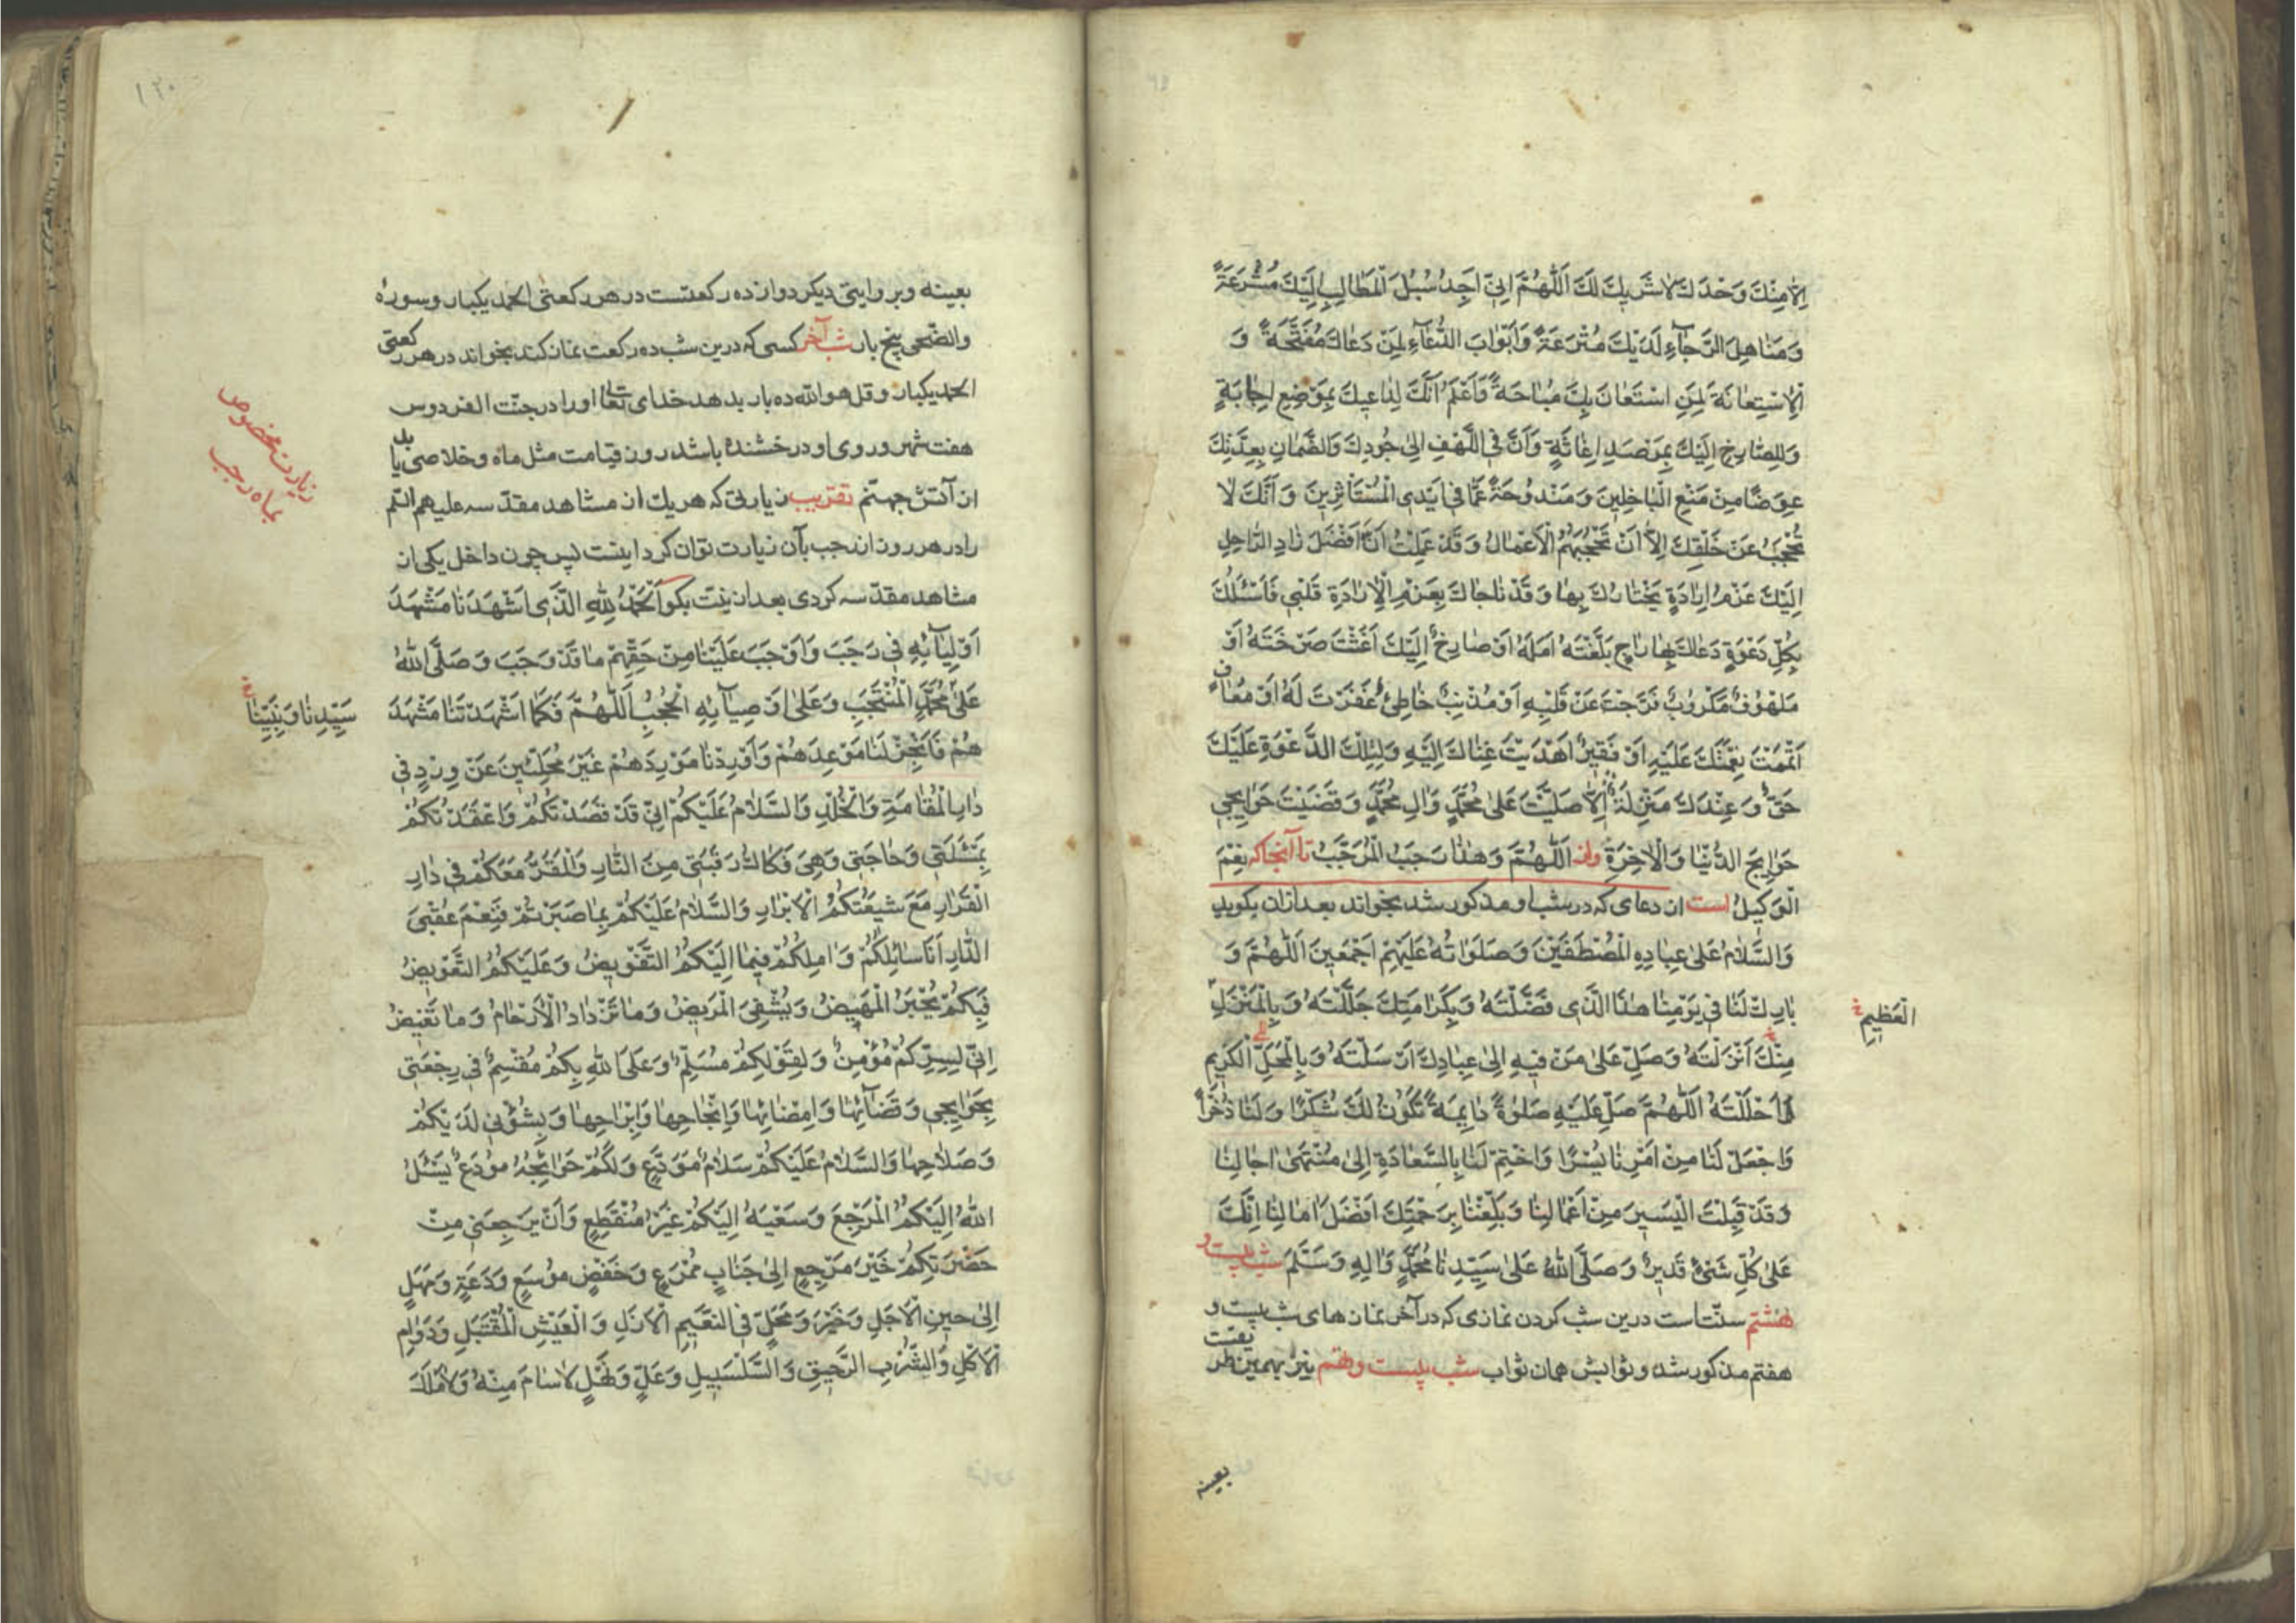 اِلّٰا مِنْكَ وَحْدَكَ لٰا شَرٖيكَ لَكَ اَللّٰهُمَّ اِنّٖي اَجِدُ سُبُلَ الْمَطٰالِبِ اِلَيْكَ مُشْرَعَةً
وَ مَنٰاهِلَ الرَّجٰآءِ لَدَيْكَ مُتْرَعَةً وَ اَبْوٰابَ الدُّعٰآءِ لِمَنْ دَعٰاكَ مُفَتَّحَةً وَ
الْاِسْتِعٰانَةَ لِمَنِ اسْتَعٰانَ بِكَ مُبٰاحَةً وَ اَعْلَمُ اَنَّكَ لِدٰاعٖيكَ بِمَوْضِعِ اِجٰابَةٍ
وَ لِلصّٰارِخِ اِلَيْكَ بِمَرْصَدِ اِغٰاثَةٍ وَ اَنَّ فِي اللَّهْفِ اِلىٰ جُودِكَ وَ الضَّمٰانِ بِعِدَتِكَ
عِوَضًا مِنْ مَنْعِ الْبٰاخِلٖينَ وَ مَنْدُوحَةً عَمّٰا فٖي اَيْدِي الْمُسْتَأْثِرٖينَ وَ اَنَّكَ لٰا
تُحْجَبُ عَنْ خَلْقِكَ اِلّٰا اَنْ تَحْجُبَهُمُ الْاَعْمٰالُ وَ قَدْ عَلِمْتُ اَنَّ اَفْضَلَ زٰادِ الرّٰاحِلِ
اِلَيْكَ عَزْمُ اِرٰادَةٍ يَخْتٰارُكَ بِهٰا وَ قَدْ نٰاجٰاكَ بِعَزْمِ الْاِرٰادَةِ قَلْبٖي فَاَسْئَلُكَ
بِكُلِّ دَعْوَةٍ دَعٰاكَ بِهٰا رٰاجٍ بَلَّغْتَهُ اَمَلَهُ اَوْ صٰارِخٌ اِلَيْكَ اَغَثْتَ صَرْخَتَهُ اَوْ
مَلْهُوفٌ مَكْرُوبٌ فَرَّجْتَ عَنْ قَلْبِهِ اَوْ مُذْنِبٌ خٰاطِئٌ غَفَرْتَ لَهُ اَوْ مُعٰافٍ
اَتْمَمْتَ نِعْمَتَكَ عَلَيْهِ اَوْ فَقٖيرٌ اَهْدَيْتَ غِنٰاكَ اِلَيْهِ وَ لِتِلْكَ الدَّعْوَةِ عَلَيْكَ
حَقٌّ وَ عِنْدَكَ مَنْزِلَةٌ اِلّٰا صَلَّيْتَ عَلىٰ مُحَمَّدٍ وَ اٰلِ مُحَمَّدٍ وَ قَضَيْتَ حَوٰايِجٖي
حَوٰايِجَ الدُّنْيٰا وَ الْاٰخِرَةِ واز اَللّٰهُمَّ وَ هٰذٰا رَجَبُ الْمُرَجَّبُ تا آنجا كه نِعْمَ
الْوَكٖيلُ است ان دعاى كه در شب او مذكور شد بخواند بعد ازان بكويد
وَ السَّلٰامُ عَلىٰ عِبٰادِهِ الْمُصْطَفَيْنَ وَ صَلَوٰاتُهُ عَلَيْهِمْ اَجْمَعٖينَ اَللّٰهُمَّ وَ
بٰارِكْ لَنٰا فٖي يَوْمِنٰا هٰذَا الَّذٖي فَضَّلْتَهُ وَ بِكَرٰامَتِكَ جَلَّلْتَهُ وَ بِالْمَنْزِلِ
الْعَظٖيمِ
مِنْكَ اَنْزَلْتَهُ وَ صَلِّ عَلىٰ مَنْ فٖيهِ اِلىٰ عِبٰادِكَ اَرْسَلْتَهُ وَ بِالْمَحَلِّ الْكَرٖيمِ
اَحْلَلْتَهُ اَللّٰهُمَّ صَلِّ عَلَيْهِ صَلٰوةً دٰايِمَةً تَكُونُ لَكَ شُكْرًا وَ لَنٰا ذُخْرًا
وَ اجْعَلْ لَنٰا مِنْ اَمْرِنٰا يُسْرًا وَ اخْتِمْ لَنٰا بِالسَّعٰادَةِ اِلىٰ مُنْتَهىٰ اٰجٰالِنٰا
وَ قَدْ قَبِلْتَ الْيَسٖيرَ مِنْ اَعْمٰالِنٰا وَ بَلِّغْنٰا بِرَحْمَتِكَ اَفْضَلَ اٰمٰالِنٰا اِنَّكَ
عَلىٰ كُلِّ شَئٍ قَدٖيرٌ وَ صَلَّى اللّٰهُ عَلىٰ سَيِّدِنٰا مُحَمَّدٍ وَ اٰلِهِ وَ سَلَّمَ شب بيست و
هشتم سنّت است درين شب كردن نمازى كه در آخر نمازهاى شب بيست و
هفتم مذكور شد و ثوابش همان ثواب شب بيست و نهم نيز بهمين طر
بعينه
بعينه و بروايتى ديكر دوازده ركعتست در هر ركعتى الحمد يكبار و سورهٔ
والضّحى پنج بار شب آخر كسى كه درين شب ده ركعت نماز كند بخواند در هر ركعتى
الحمد يكبار و قل هو اللّه ده بار بدهد خداى تعالى او را در جنّت الفردوس
هفت شهر و روى او درخشنده باشد روز قيامت مثل ماه و خلاصى يابد
از آتش جهنّم تقريب زيارتى كه هر يك از مشاهد مقدّسه عليهم السّلم
را در هر روز از رجب بآن زيارت توان كرد اينست پس چون داخل يكى از
زيارت مخصوص
بماه رجب
مشاهد مقدّسه كردى بعد از نيّت بكو اَلْحَمْدُ لِلّٰهِ الَّذٖي اَشْهَدَنٰا مَشْهَدَ
اَوْلِيٰآئِهِ فٖي رَجَبَ وَ اَوْجَبَ عَلَيْنٰا مِنْ حَقِّهِمْ مٰا قَدْ وَجَبَ وَ صَلَّى اللّٰهُ
عَلىٰ مُحَمَّدٍ الْمُنْتَجَبِ وَ عَلىٰ اَوْصِيٰآئِهِ الْحُجُبِ اَللّٰهُمَّ فَكَمٰا اَشْهَدْتَنٰا مَشْهَدَ
سَيِّدِنٰا وَ نَبِيِّنٰا
هُمْ فَاَنْجِزْ لَنٰا مَوْعِدَهُمْ وَ اَوْرِدْنٰا مَوْرِدَهُمْ غَيْرَ مُحَلَّئٖينَ عَنْ وِرْدٍ فٖي
دٰارِ الْمُقٰامَةِ وَ الْخُلْدِ وَ السَّلٰامُ عَلَيْكُمْ اِنّٖي قَدْ قَصَدْتُكُمْ وَ اعْتَمَدْتُكُمْ
بِمَسْئَلَتٖي وَ حٰاجَتٖي وَ هِيَ فَكٰاكُ رَقَبَتٖي مِنَ النّٰارِ وَ الْمَقَرُّ مَعَكُمْ فٖي دٰارِ
الْقَرٰارِ مَعَ شٖيعَتِكُمُ الْاَبْرٰارِ وَ السَّلٰامُ عَلَيْكُمْ بِمٰا صَبَرْتُمْ فَنِعْمَ عُقْبَى
الدّٰارِ اَنَا سٰائِلُكُمْ وَ اٰمِلُكُمْ فٖيمٰا اِلَيْكُمُ التَّفْوٖيضُ وَ عَلَيْكُمُ التَّعْوٖيضُ
فَبِكُمْ يُجْبَرُ الْمَهٖيضُ وَ يُشْفَى الْمَرٖيضُ وَ مٰا تَزْدٰادُ الْاَرْحٰامُ وَ مٰا تَغٖيضُ
اِنّٖي لِسِرِّكُمْ مُؤْمِنٌ وَ لِقَوْلِكُمْ مُسَلِّمٌ وَ عَلَى اللّٰهِ بِكُمْ مُقْسِمٌ فٖي رَجْعَتٖي
بِحَوٰايِجٖي وَ قَضٰآئِهٰا وَ اِمْضٰائِهٰا وَ اِنْجٰاحِهٰا وَ اِبْرٰاحِهٰا وَ بِشُؤُنٖي لَدَيْكُمْ
وَ صَلٰاحِهٰا وَ السَّلٰامُ عَلَيْكُمْ سَلٰامُ مُوَدِّعٍ وَ لَكُمْ حَوٰائِجُهُ مُودَعٌ يَسْئَلُ
اللّٰهَ اِلَيْكُمُ الْمَرْجِعَ وَ سَعْيَهُ اِلَيْكُمْ غَيْرَ مُنْقَطِعٍ وَ اَنْ يَرْجِعَنٖي مِنْ
حَضْرَتِكُمْ خَيْرَ مَرْجِعٍ اِلىٰ جَنٰابٍ مُمْرِعٍ وَ خَفْضٍ مُوسَعٍ وَ دَعَةٍ وَ مَهَلٍ
اِلىٰ حٖينِ الْاَجَلِ وَ خَيْرِ وَ مَحَلٍّ فِي النَّعٖيمِ الْاَزَلِ وَ الْعَيْشِ الْمُقْتَبَلِ وَ دَوٰامِ
الْاُكُلِ وَ الشُّرْبِ الرَّحٖيقِ وَ السَّلْسَبٖيلِ وَ عَلٍّ وَ نَهَلٍ لٰا سَأَمَ مِنْهُ وَ لٰا مَلَلَ
١٢٠